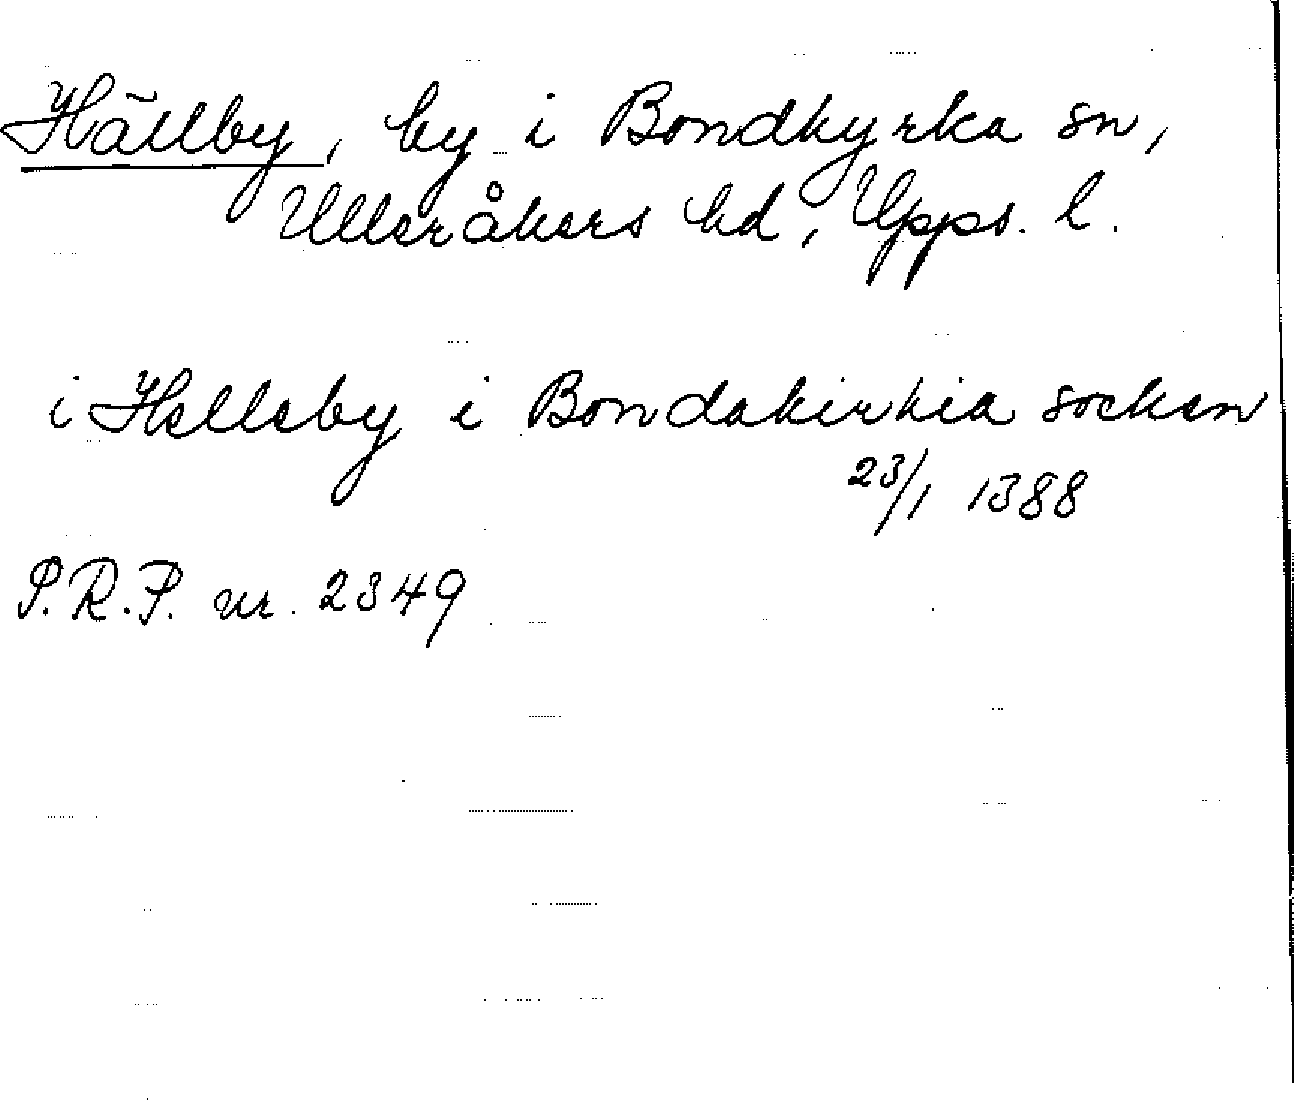 Hällby, by i Bondkyrka sn,
Ulleråkers hd, Upps. l.
i Hælleby i Bondakirkia socken
23/1 1388
S.R.P. nr. 2349